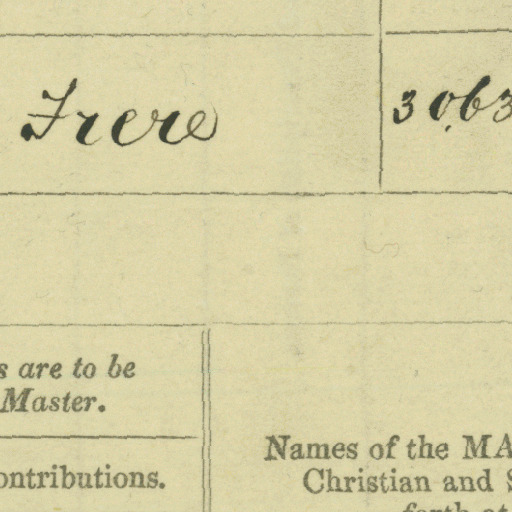 Frere 3063
s are to be
Master.
ontributions.
Names of the MA
Christian and S
forth at